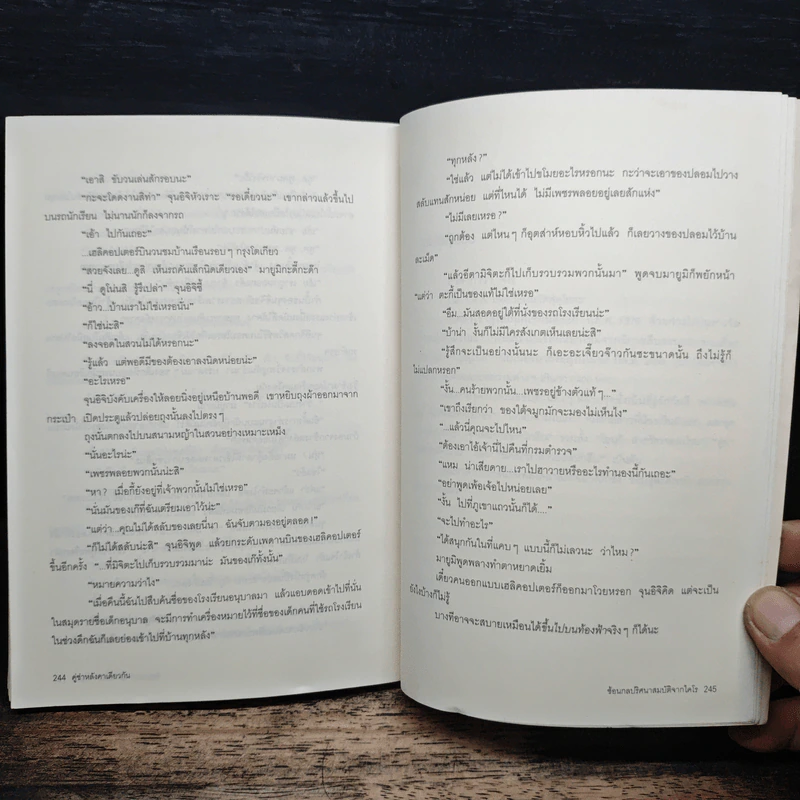 "เอาสิ ขับวนเล่นสักรอบนะ"
"กะจะโดดงานสิท่า" จุนอิจิหัวเราะ "รอเดี๋ยวนะ" เขากล่าวแล้วขึ้นไป
บนรถนักเรียน ไม่นานนักก็ลงจากรถ
"เอ้า ไปกันเถอะ"
...เฮลิคอปเตอร์บินวนชมบ้านเรือนรอบๆ กรุงโตเกียว
"สวยจังเลย...ดูสิ เห็นรถคันเล็กนิดเดียวเอง" มายูมิกะดี๊กะด๊า
"นี่ ดูโน่นสิ รู้รึเปล่า" จุนอิจิชี้
"อ้าว...บ้านเราไม่ใช่เหรอนั่น"
"ก็ใช่น่ะสิ"
"ลงจอดในสวนไม่ได้หรอกนะ"
"รู้แล้ว แต่พอดีมีของต้องเอาลงนิดหน่อยน่ะ"
"อะไรเหรอ"
จุนอิจิบังคับเครื่องให้ลอยนิ่งอยู่เหนือบ้านพอดี เขาหยิบถุงผ้าออกมาจาก
กระเป๋า เปิดประตูแล้วปล่อยถุงนั้นลงไปตรงๆ
ถุงนั้นตกลงไปบนสนามหญ้าในสวนอย่างเหมาะเหม็ง
"นั่นอะไรน่ะ"
"เพชรพลอยพวกนั้นน่ะสิ"
"หา? เมื่อกี้ยังอยู่ที่เจ้าพวกนั้นไม่ใช่เหรอ"
"นั่นมันของเก๊ที่ฉันเตรียมเอาไว้น่ะ"
"แต่ว่า...คุณไม่ได้สลับของเลยนี่นา ฉันจับตามองอยู่ตลอด!"
"ก็ไม่ได้สลับน่ะสิ" จุนอิจิพูด แล้วยกระดับเพดานบินของเฮลิคอปเตอร์
ขึ้นอีกครั้ง "...ที่มิจิตะไปเก็บรวบรวมมาน่ะ มันของเก๊ทั้งนั้น"
"หมายความว่าไง"
"เมื่อคืนนี้ฉันไปสืบค้นชื่อของโรงเรียนอนุบาลมา แล้วแอบดอดเข้าไปที่นั่น
ในสมุดรายชื่อเด็กอนุบาล จะมีการทำเครื่องหมายไว้ที่ชื่อของเด็กคนที่ใช้รถโรงเรียน
ในช่วงดึกฉันก็เลยย่องเข้าไปที่บ้านทุกหลัง"
244 คู่ซ่าหลังคาเดียวกัน
"ทุกหลัง?"
"ใช่แล้ว แต่ไม่ได้เข้าไปขโมยอะไรหรอกนะ กะว่าจะเอาของปลอมไปวาง
สลับแทนสักหน่อย แต่ที่ไหนได้ ไม่มีเพชรพลอยอยู่เลยสักแห่ง"
"ไม่มีเลยเหรอ?"
"ถูกต้อง แต่ไหนๆ ก็อุตส่าห์หอบหิ้วไปแล้ว ก็เลยวางของปลอมไว้บ้าน
ละเม็ด"
"แล้วอีตามิจิตะก็ไปเก็บรวบรวมพวกนั้นมา" พูดจบมายูมิก็พยักหน้า
"แต่ว่า ตะกี้เป็นของแท้ไม่ใช่เหรอ"
"อืม...มันสอดอยู่ใต้ที่นั่งของรถโรงเรียนน่ะ"
"บ้าน่า งั้นก็ไม่มีใครสังเกตเห็นเลยน่ะสิ"
"รู้สึกจะเป็นอย่างนั้นนะ ก็เอะอะเจี๊ยวจ๊าวกันซะขนาดนั้น ถึงไม่รู้ก็
ไม่แปลกหรอก"
"งั้น...คนร้ายพวกนั้น...เพชรอยู่ข้างตัวแท้ๆ..."
"เขาถึงเรียกว่า ของใต้จมูกมักจะมองไม่เห็นไง"
"...แล้วนี่คุณจะไปไหน"
"ต้องเอาไอ้เจ้านี่ไปคืนที่กรมตำรวจ"
"แหม น่าเสียดาย...เราไปฮาวายหรืออะไรทำนองนี้กันเถอะ"
"อย่าพูดเพ้อเจ้อไปหน่อยเลย"
"งั้น ไปที่ภูเขาแถวนั้นก็ได้...."
"จะไปทำอะไร"
"ได้สนุกกันในที่แคบๆ แบบนี้ก็ไม่เลวนะ ว่าไหม?"
มายูมิพูดพลางทำตาหยาดเยิ้ม
เดี๋ยวคนออกแบบเฮลิคอปเตอร์ก็ออกมาโวยหรอก จุนอิจิคิด แต่จะเป็น
ยังไงบ้างก็ไม่รู้
บางทีอาจจะสบายเหมือนได้ขึ้นไปบนท้องฟ้าจริงๆ ก็ได้นะ
ซ้อนกลปริศนาสมบัติจากไคโร 245